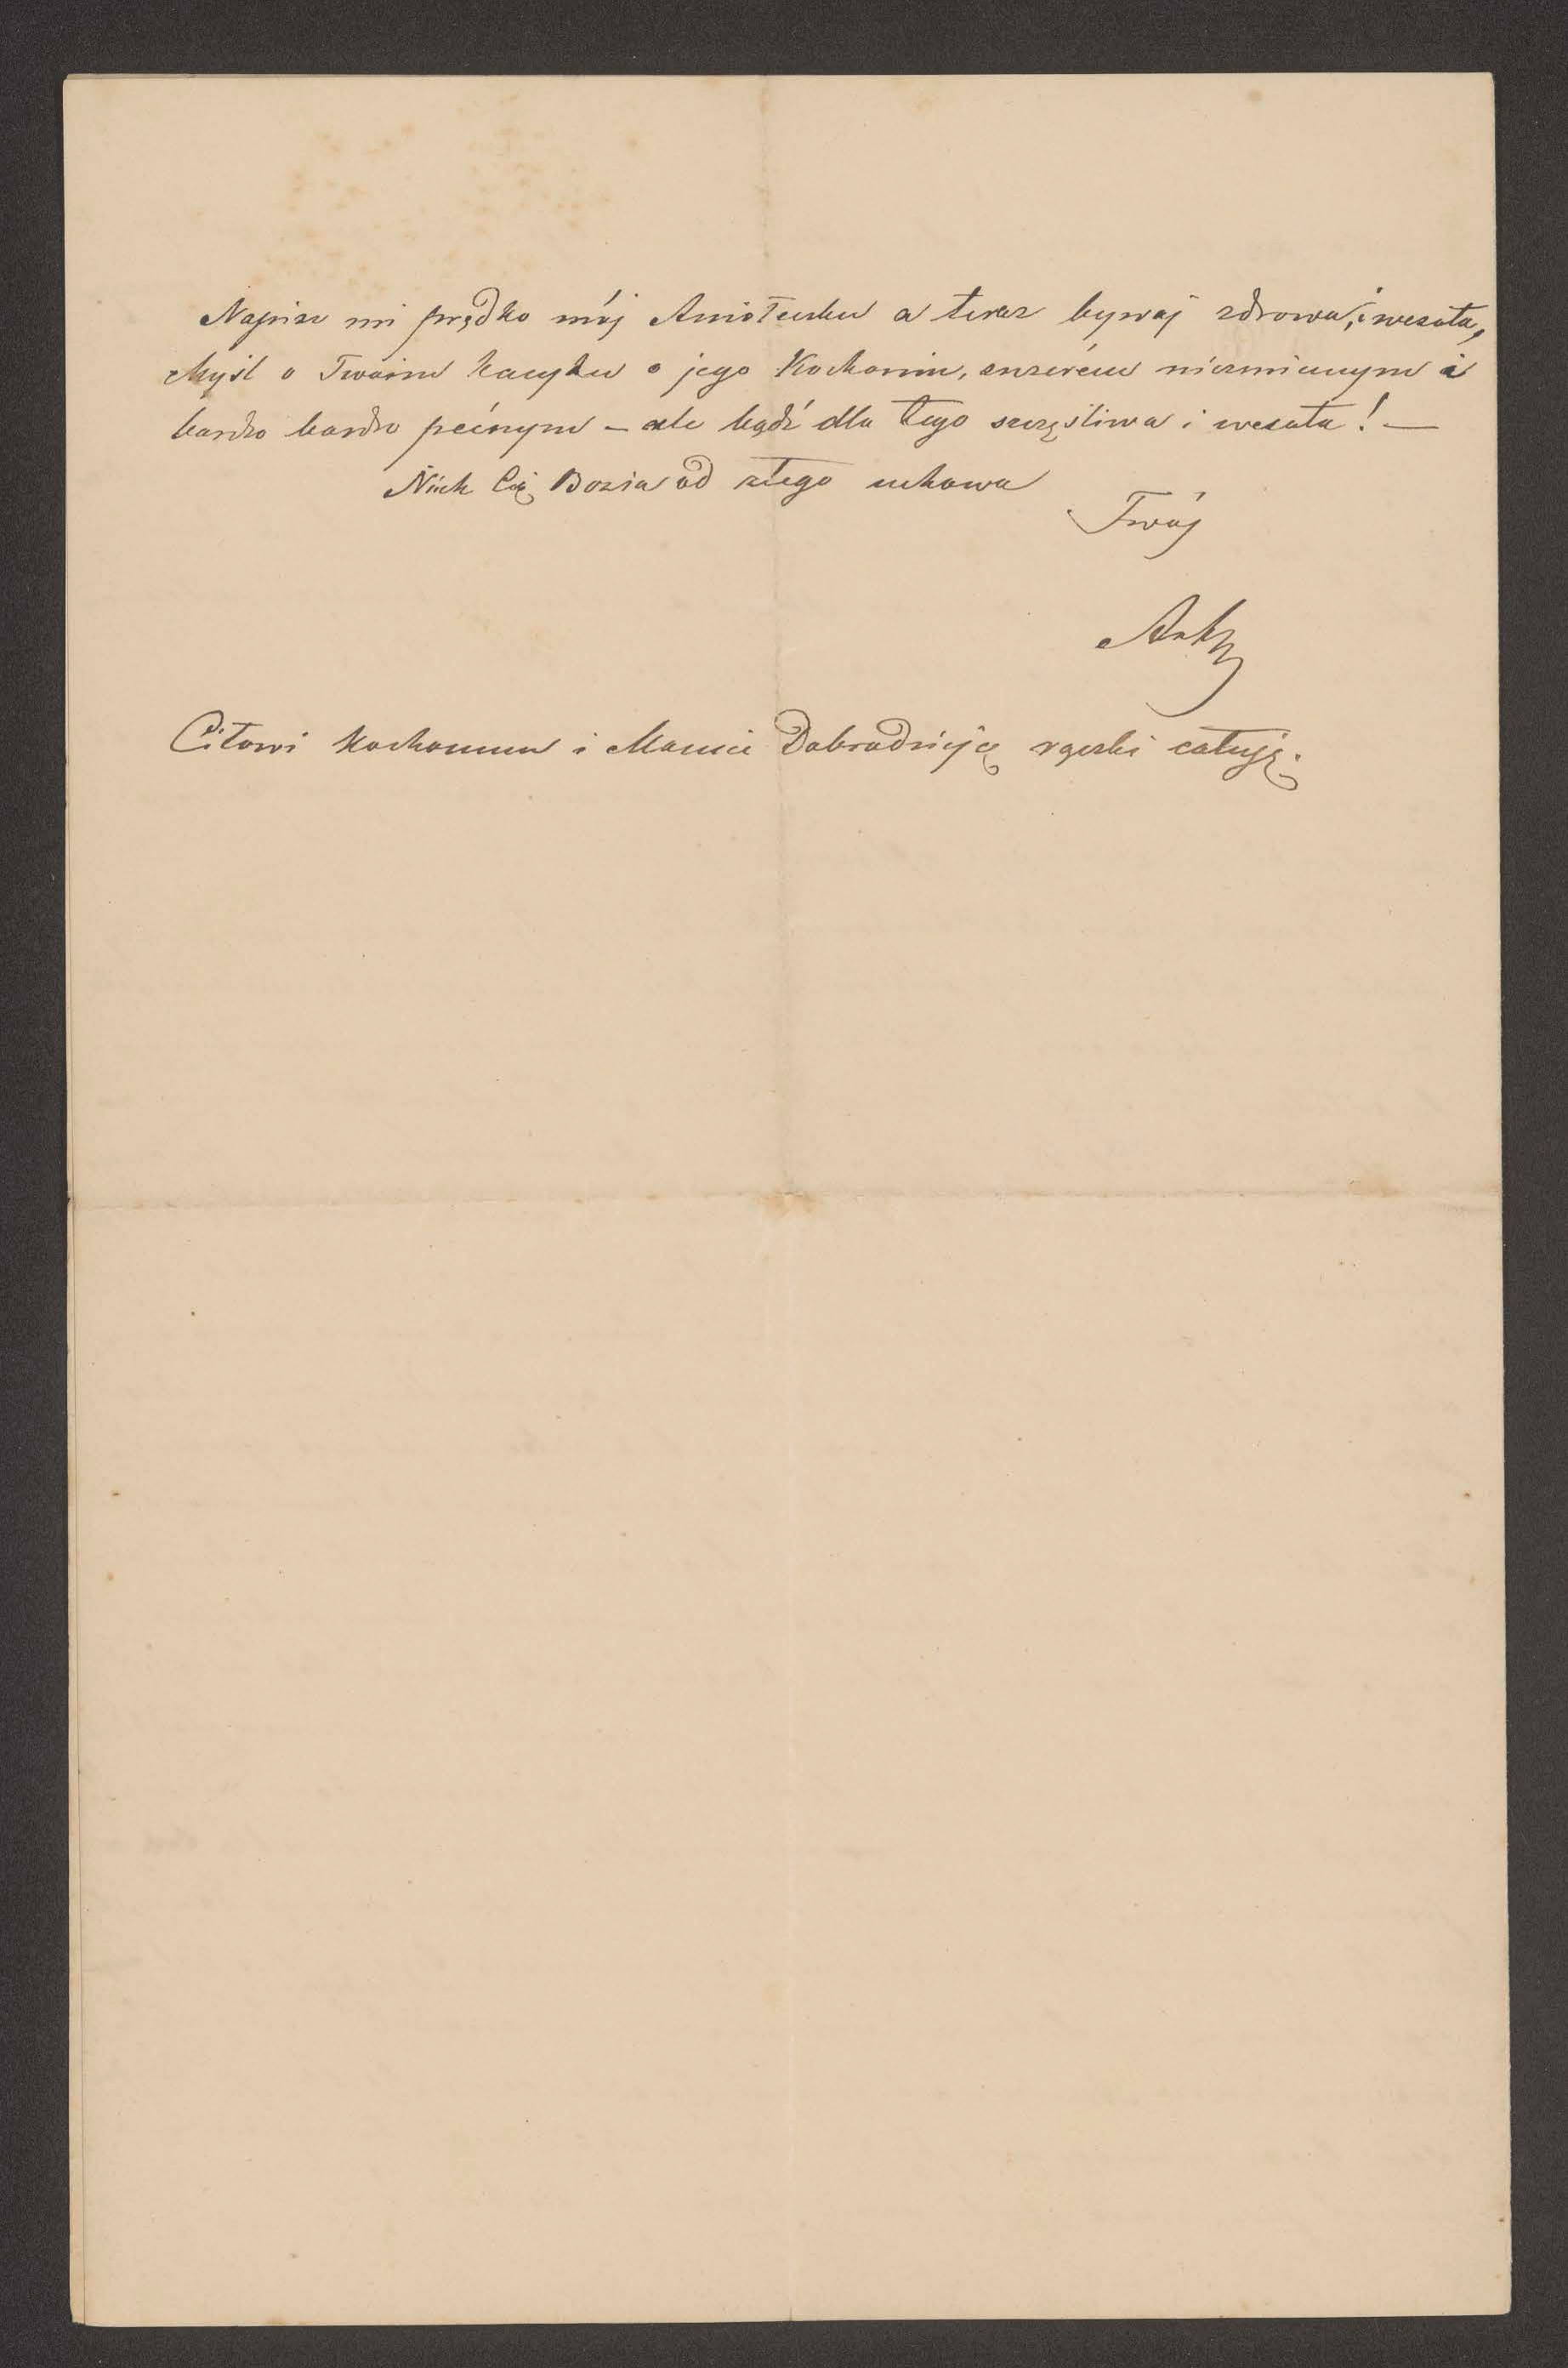 Napisz mi prędko mój Aniołeczku a teraz bywaj zdrowa, i wesoła,
Myśl o Twoim kacyku o jego Kochaniu, szczerém niezmiennym i
bardzo bardzo pewnym – ale bądź dla tego szczęśliwa i wesoła! –
Niech Cię Bozia od złego uchowa
Twój
Citowi kochanemu i Mamie Dobrodziejce rączki całuję.